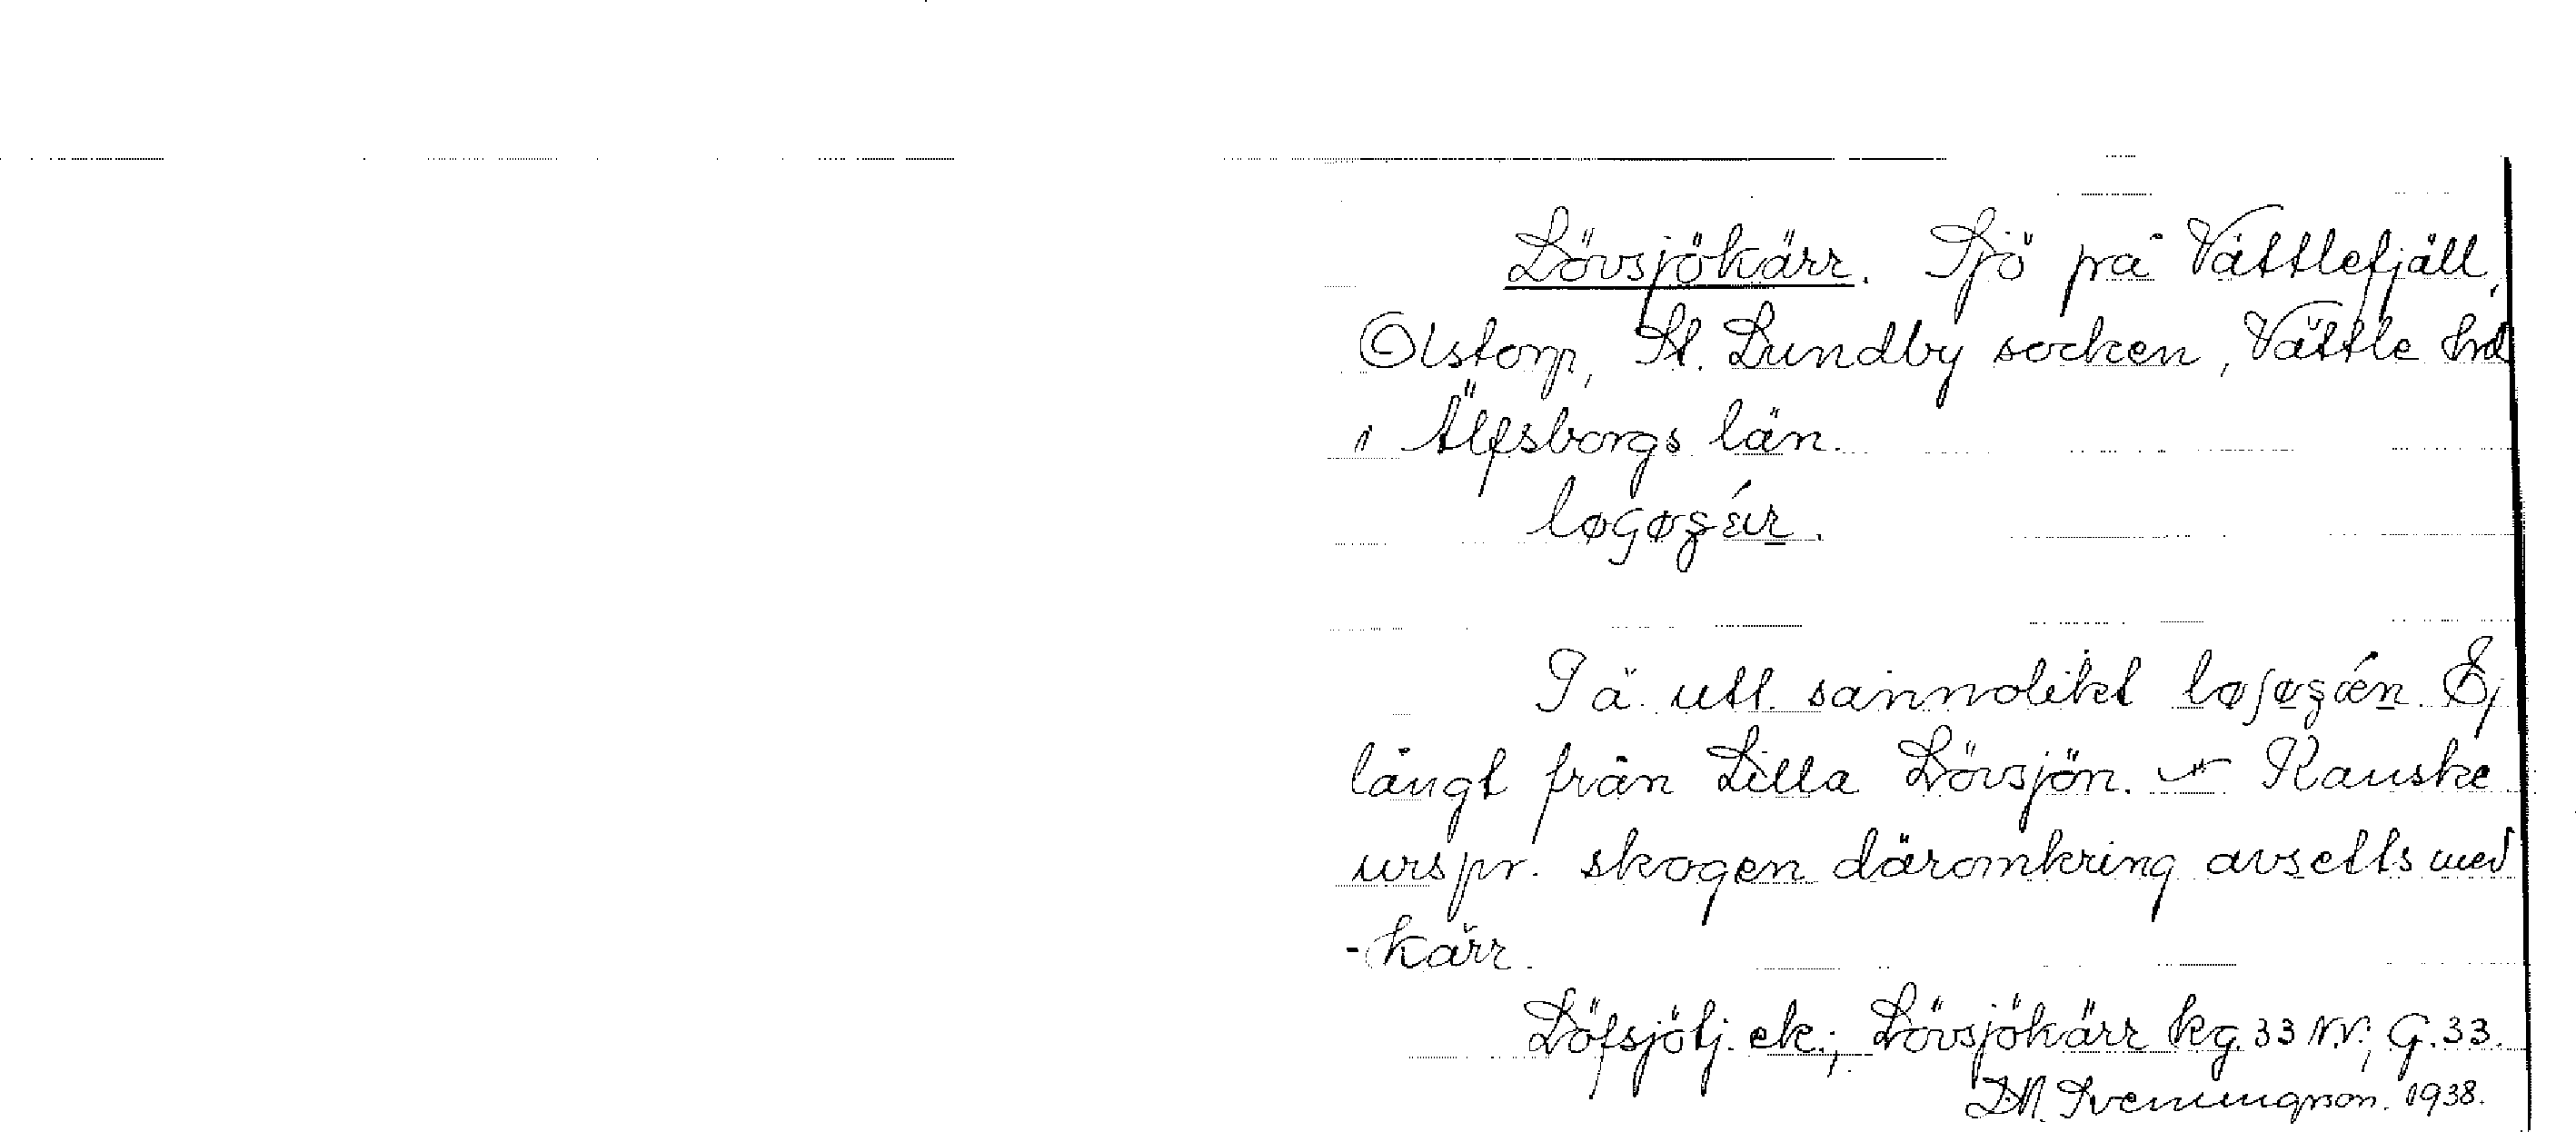 Lövsjökärr. Sjö på Vättlefjäll,
Olstorp, St. Lundby socken, Vättle hrd
i Älfsborgs län.
Pä. utl. sannolikt Ej
långt från Lilla Lövsjön. – Kanske
urspr. skogen däromkring avsetts med
-kärr.
Löfsjötj. ek.; Lövsjökärr kg. 33 N.V.; G. 33.
Svenungsson. 1938.